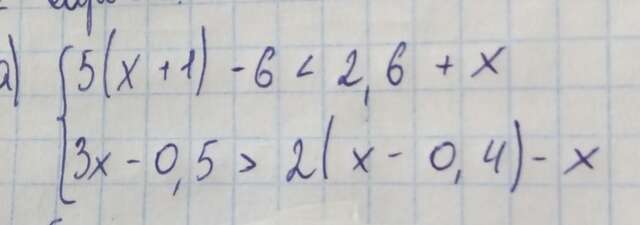 а) 5(x+1) - 6 < 2,6 + x
3x - 0,5 > 2(x - 0,4) - x